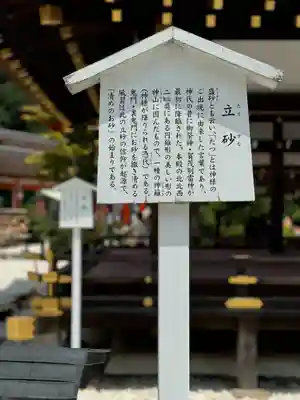 立砂
たて ずな
盛砂とも云い「たつ」とは神様の
ご出現に由来した言葉であり、
神代の昔に御祭神・賀茂別雷神が
最初に降臨された、本殿の北北西
にある円錐形の美しい形の
神山に因んだもので、一種の神籬
(神様が降りられる憑代)である。
鬼門・裏鬼門にお砂を撒き清める
風習は此の立砂の信仰が起源で、
「清めのお砂」の始まりである。